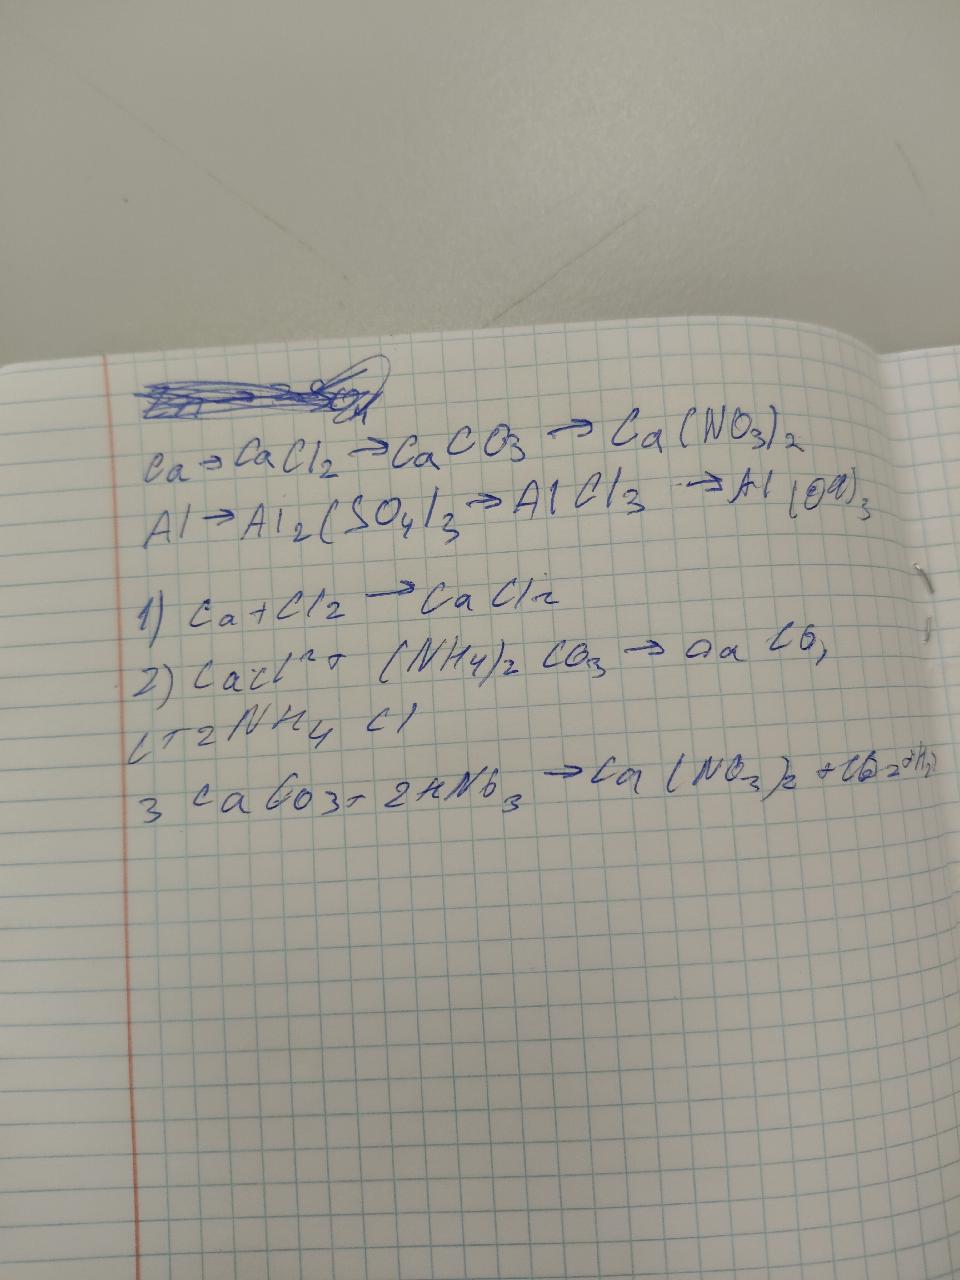 Ca → CaCl2 → CaCO3 → Ca(NO3)2
Al → Al2(SO4)3 → AlCl3 → Al(OH)3
1) Ca + Cl2 → CaCl2
2) CaCl2 + (NH4)2 CO3 → CaCO3
+ 2NH4 Cl
3 CaCO3 + 2HNO3 → Ca(NO3)2 + CO2 + H2